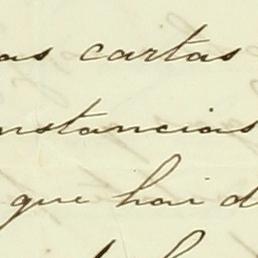 as cartas
nstancias
que hai d